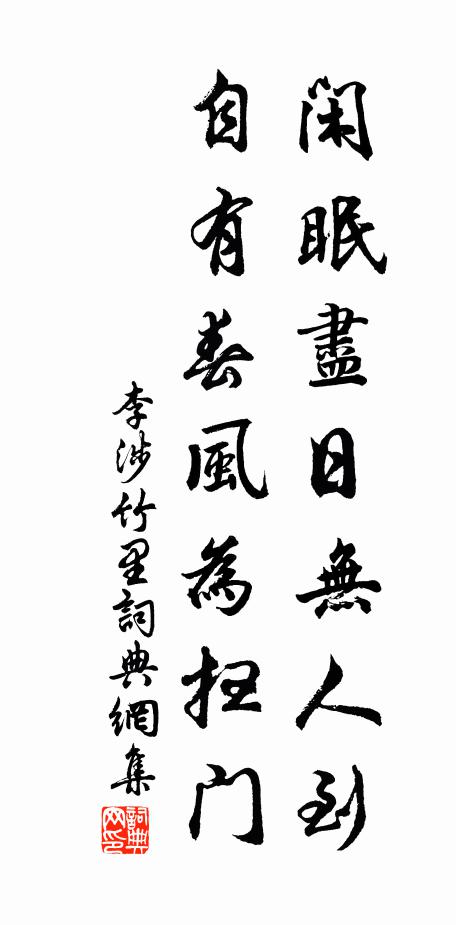 閑眠盡日無人到
自有春風為掃門
李涉竹里詞典網集
詞典
网印